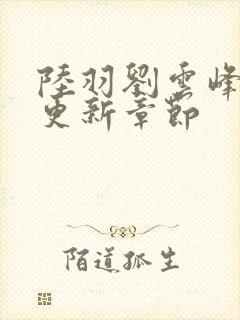 陸羽劉雲峰
更新章節
陌道孤生